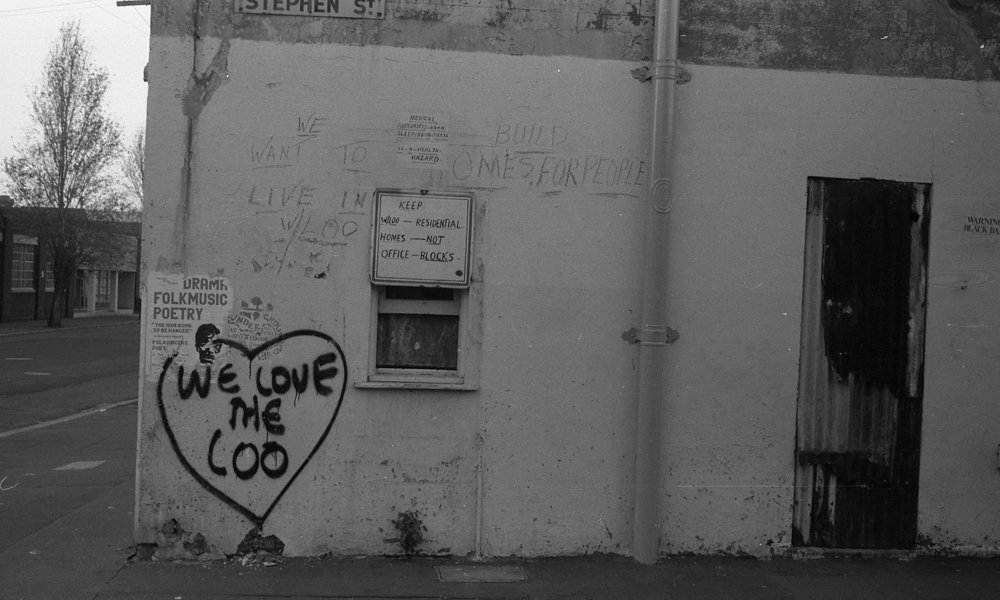 STEPHEN ST.
WE
WANT TO
LIVE IN
W/LOO
MEDICAL
SLEEPING-IN-PARKS
IS-A-HEALTH-
HAZARD
BUILD
OMES, FOR PEOPLE
KEEP
W/LOO — RESIDENTIAL.
HOMES — NOT
OFFICE — BLOCKS.
DRAMA
FOLKMUSIC
POETRY
"THE MAN BORN
TO BE HANGED"
FOLKSINGERS
POET
WE LOVE
THE
LOO
WARNING
BLACK BA